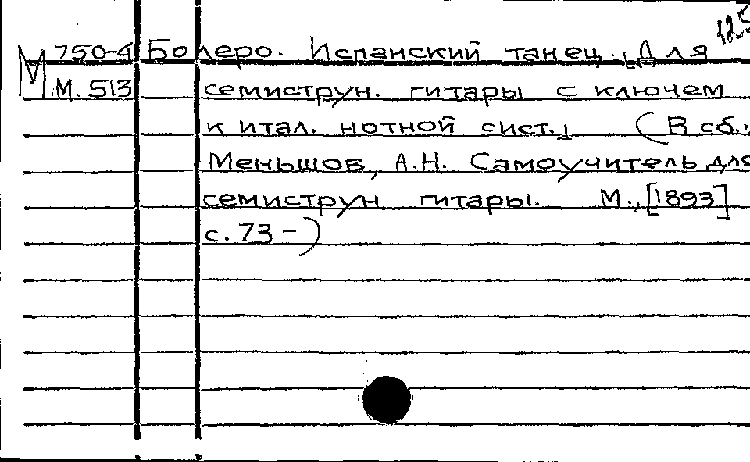 М 750-4 Болеро. Испанский танец. [Для
М. 513 семиструн. гитары с ключем
к итал. нотной сист.] (В сб.:
Меньшов, А.Н. Самоучитель для
семиструн гитары. М., [1893]
с. 73 - )